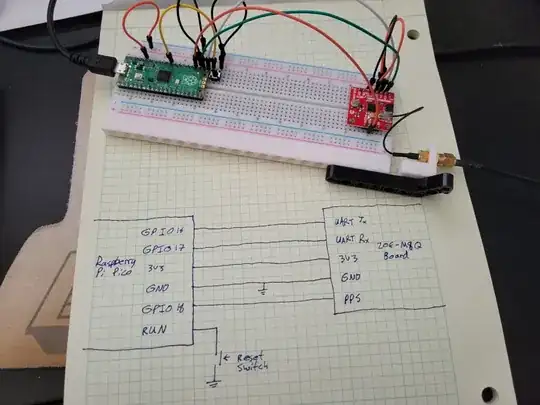 GPIO 16
GPIO 17
Raspberry
Pi Pico
3V3
GND
GPIO 18
RUN
UART Tx
UART Rx
ZOE-M8Q
Board
3V3
GND
PPS
← Reset
Switch